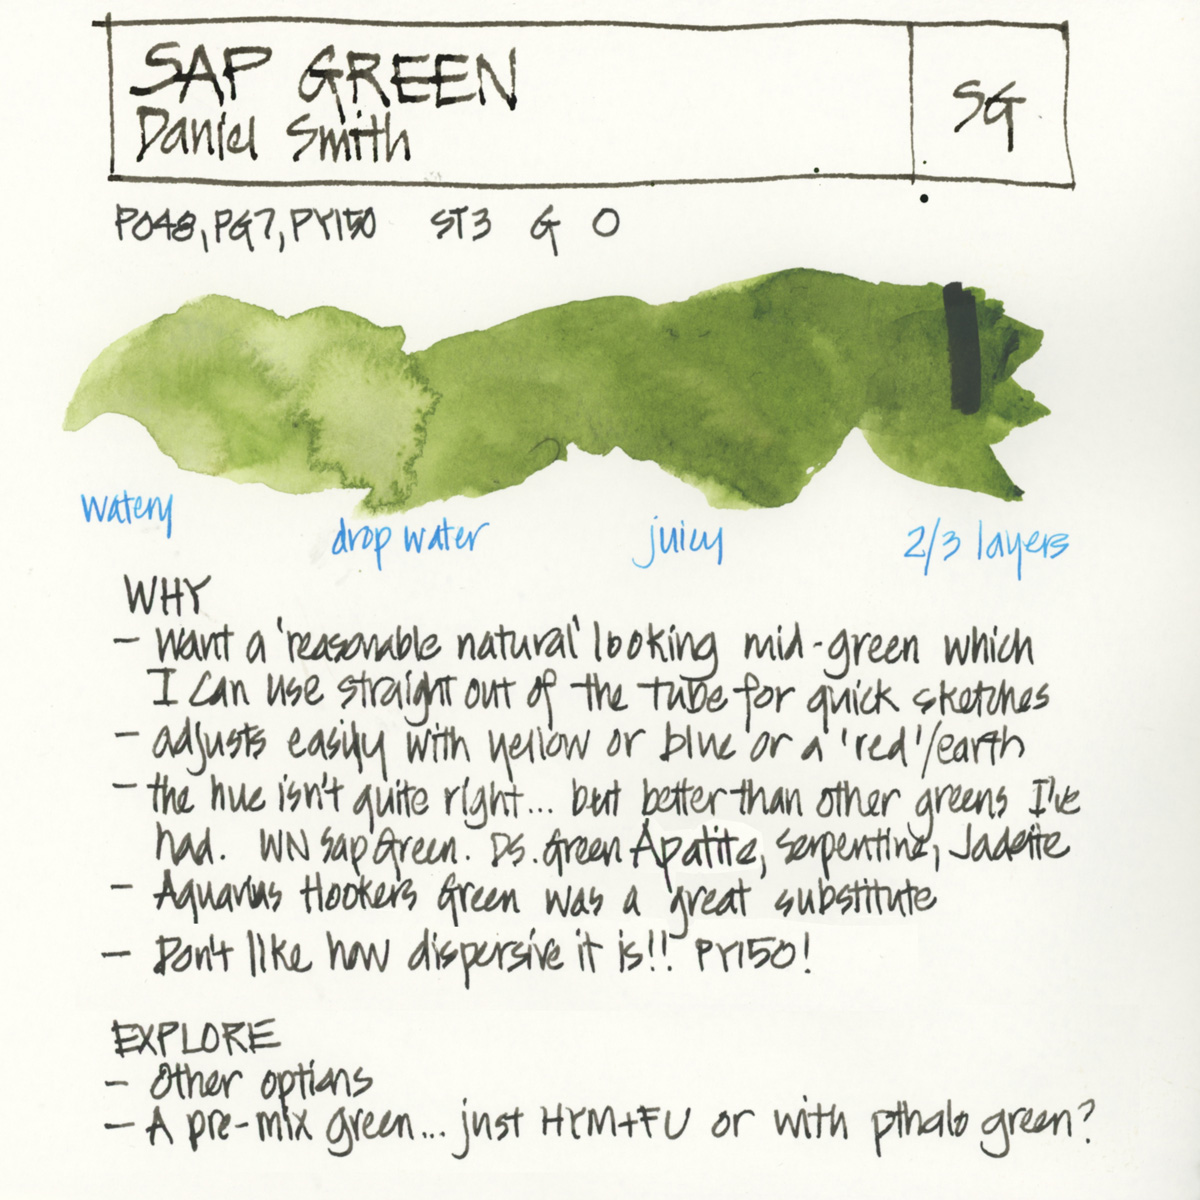 SAP GREEN
Daniel Smith
SG
PO48, PG7, PY150 ST3 G O
watery
drop water
juicy
2/3 layers
WHY
- Want a 'reasonable natural' looking mid-green which
I can use straight out of the tube for quick sketches
- adjusts easily with yellow or blue or a 'red'/earth
- the hue isn't quite right... but better than other greens I've
had. WN Sap Green. DS. Green Apatite, Serpentine, Jadeite
- Aquarius Hookers Green was a great substitute
- Don't like how dispersive it is!! PY150!
EXPLORE
- Other options
- A pre-mix green... just HYM+FU or with pthalo green?